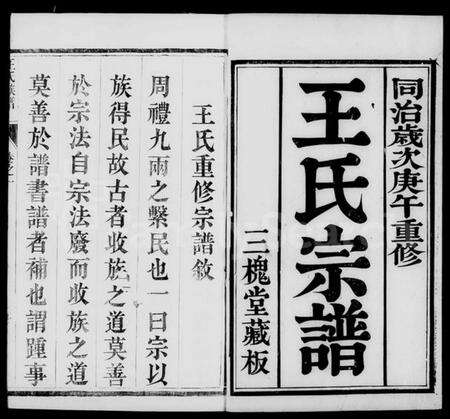 同治歲次庚午重修
王氏宗譜
三槐堂藏板
王氏重修宗譜敘
周禮九兩之繫民也一曰宗以
族得民故古者收族之道莫善
於宗法自宗法廢而收族之道
莫善於譜書譜者補也謂踵事
王氏族譜
卷之一